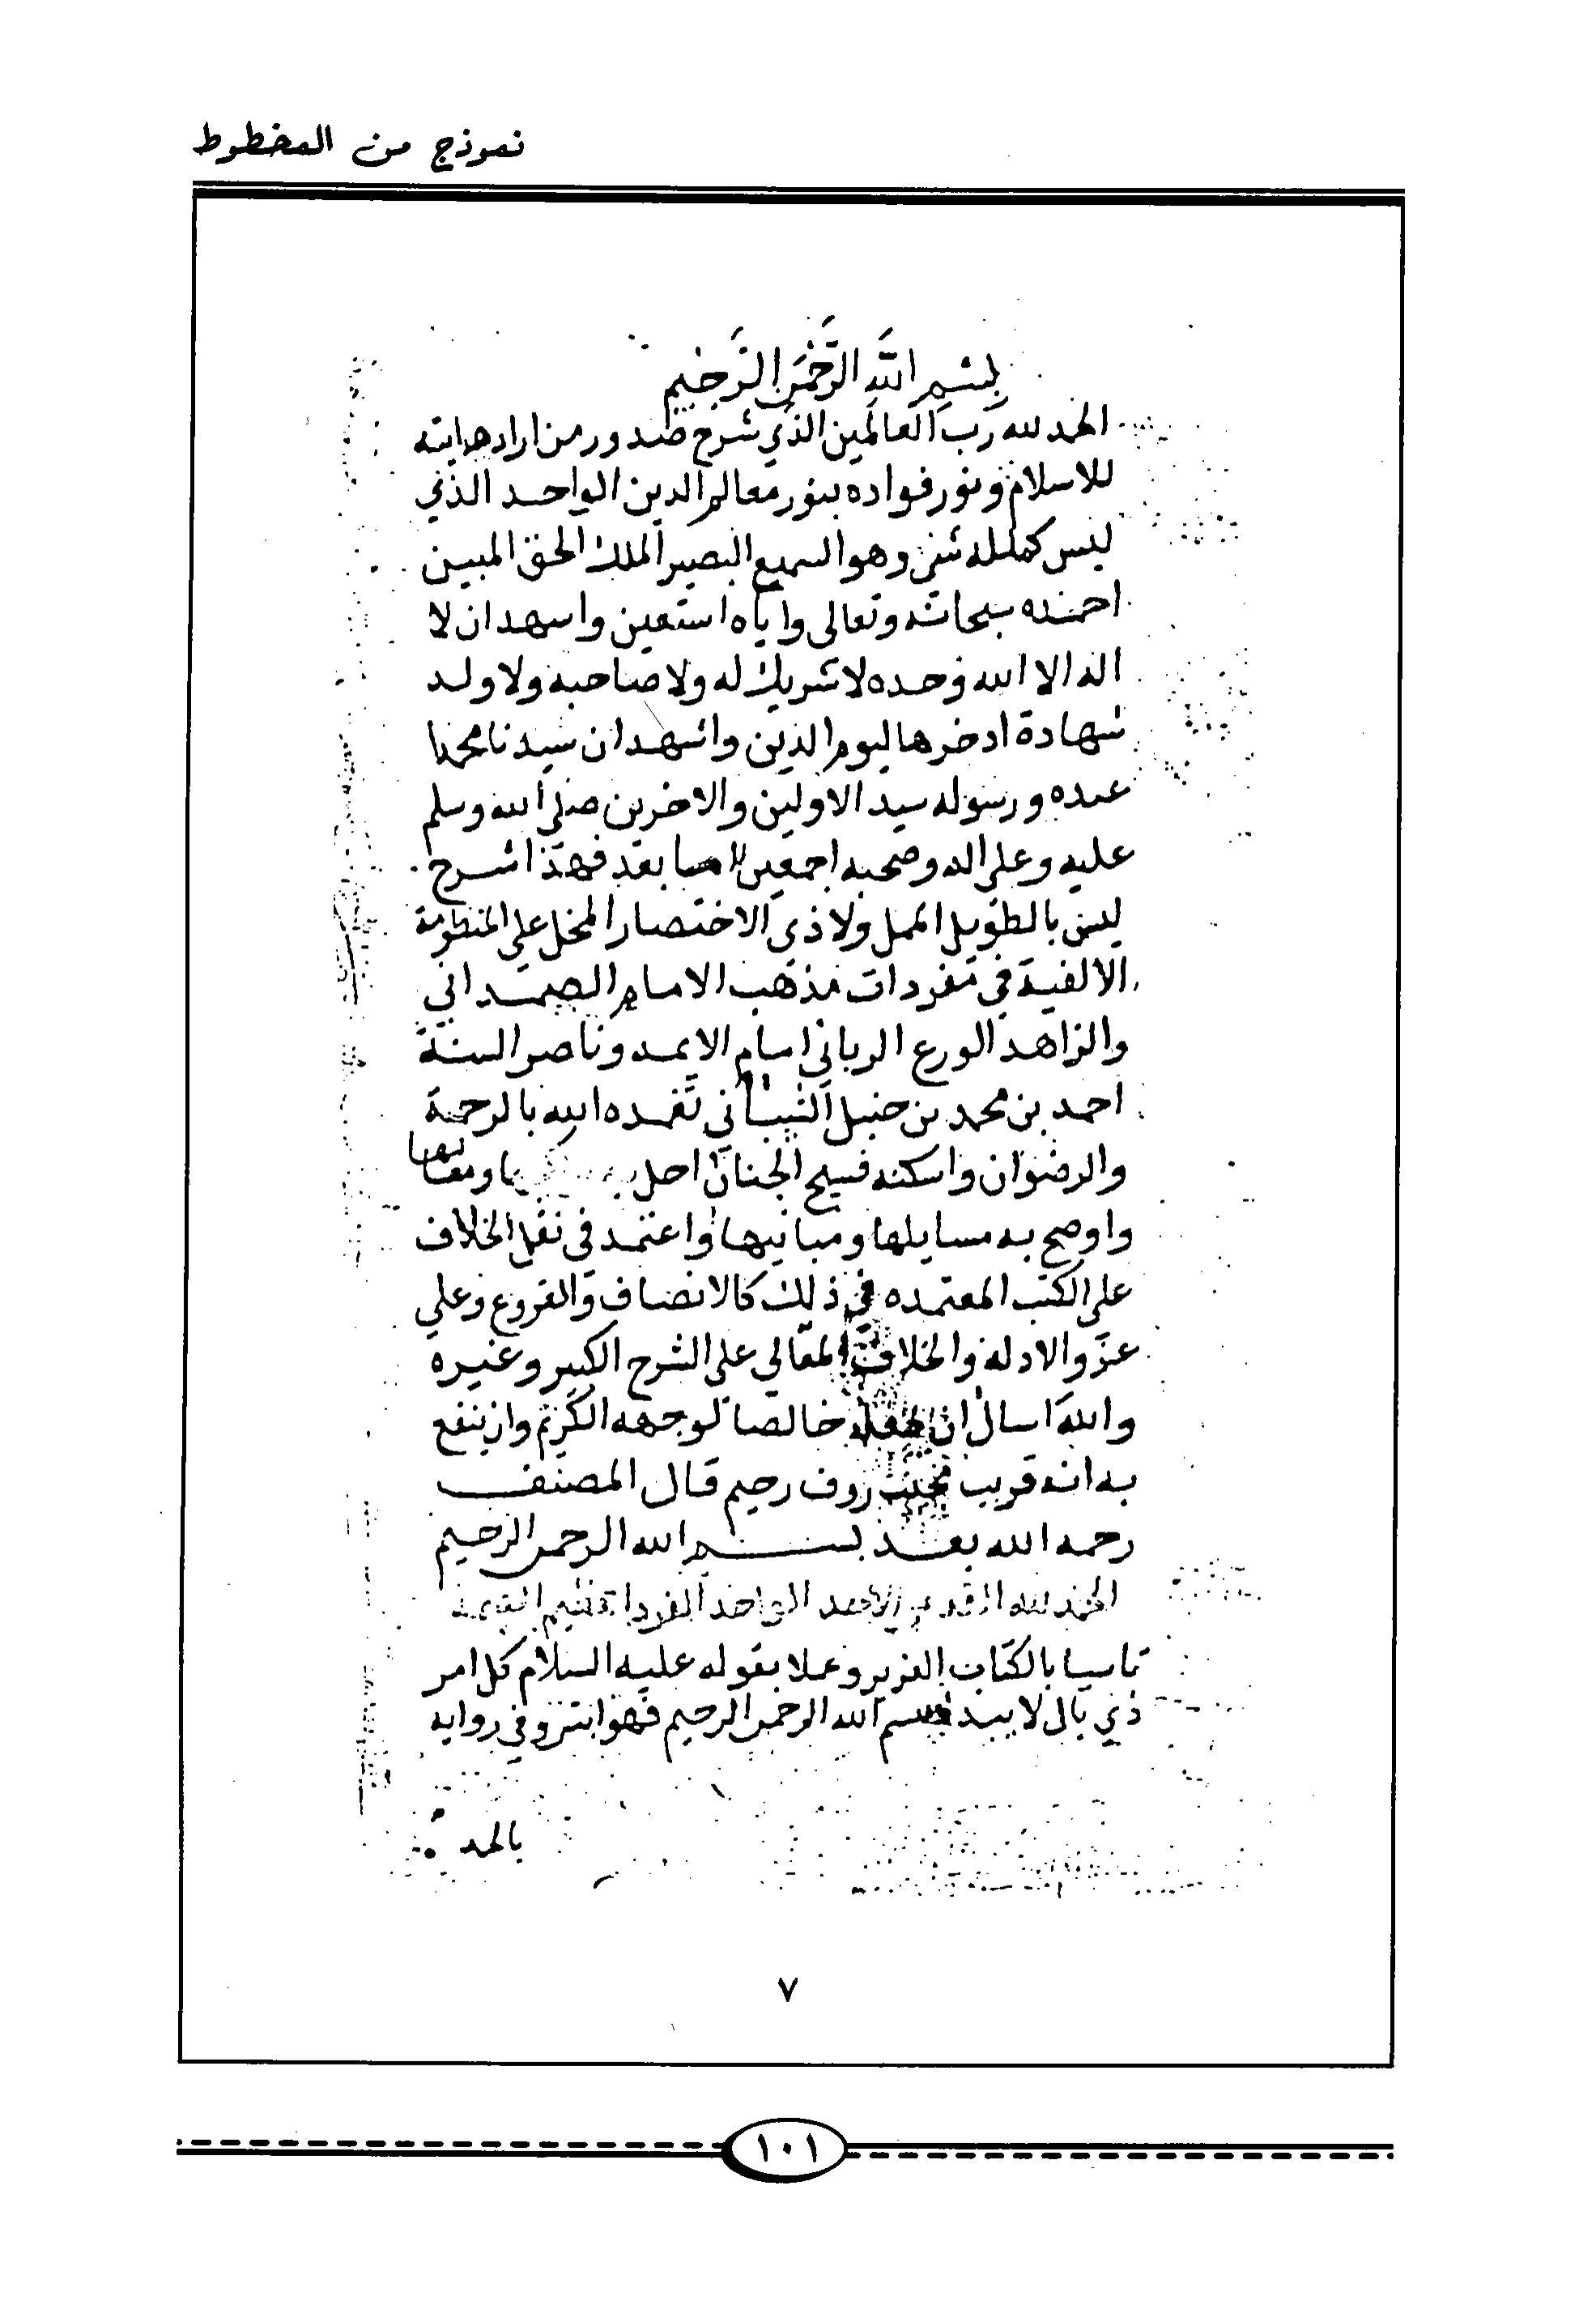 نموذج من المخطوط
بسم الله الرَّحْمَن الرَّحِيم
الحمد لله رَب العالمين الذي شرح صدور من اراد هدايته
للاسلام ونور فواده بنور معالم الدين الواحد الذي
ليس كمثله شي وهو السميع البصير الملك الحق المبين
احمده سبحانه وتعالى واياه استعين واشهد ان لا
اله الا الله وحده لا شريك له ولا صاحبة ولا ولد
شهادة ادخرها ليوم الدين واشهد ان سيدنا محمدا
عبده ورسوله سيد الاولين والاخرين صلى الله وسلم
عليه وعلى اله وصحبه اجمعين اما بعد فهذا شرح
ليس بالطويل الممل ولا ذي الاختصار المخل على المنظومة
الالفية في مفردات مذهب الامام الصمداني
والزاهد الورع الرباني امام الايمه وناصر السنة
احمد بن محمد بن حنبل الشيباني تغمده الله بالرحمة
والرضوان واسكنه فسيح الجنان احل به ومعانيها
واوضح به مسايلها ومبانيها واعتمد في نقل الخلاف
على الكتب المعتمده في ذلك كالانصاف والفروع وعلي
عزو الادلة والخلاف المقالي على الشرح الكبير وغيره
والله اسال ان يجعله خالصا لوجهه الكريم وان ينفع
به انه قريب مجيب روف رحيم قال المصنف
رحمه الله بعد بسم الله الرحمن الرحيم
الحمد لله القديم الاحد الواحد الفرد
تاسيا بالكتاب العزيز وعملا بقوله عليه السلام كل امر
ذي بال لا يبدا ببسم الله الرحمن الرحيم فهو ابتر وفي رواية
بالحمد
٧
١٠١